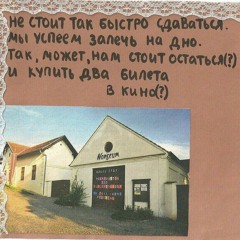 не стоит так быстро сдаваться.
мы успеем залечь на дно.
так, может, нам стоит остаться(?)
и купить два билета
в кино(?)